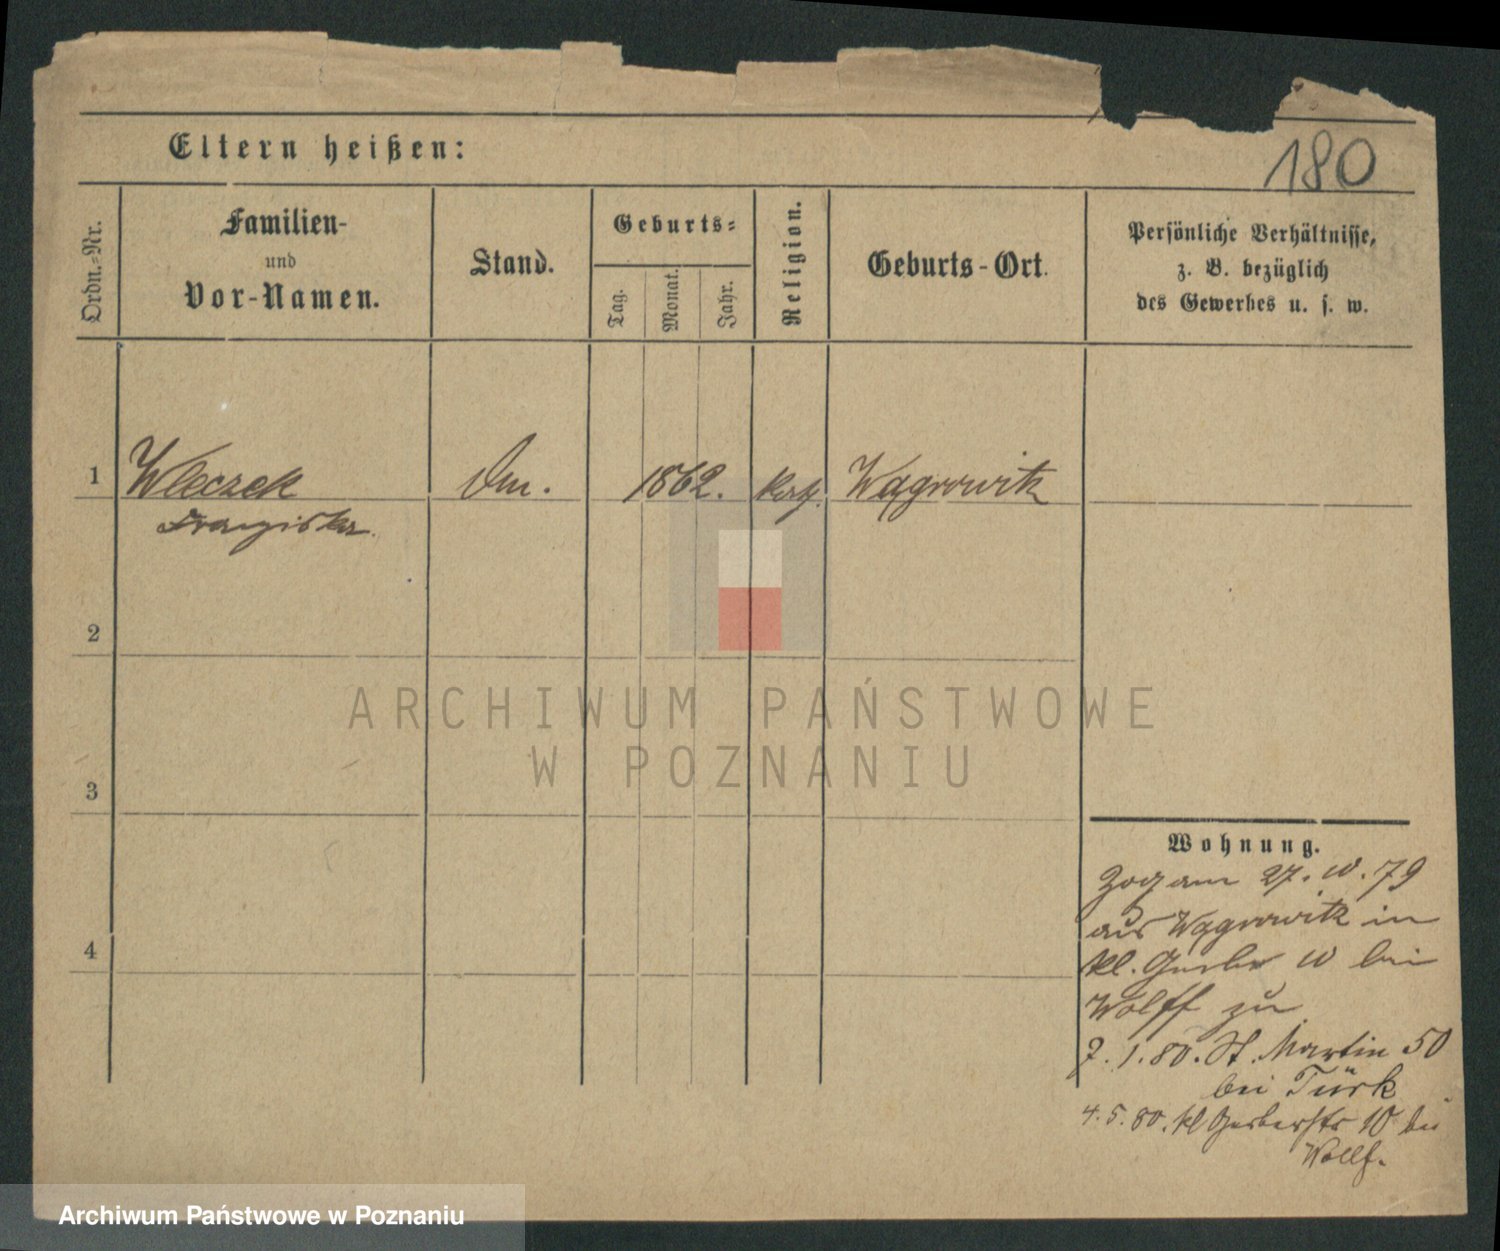 180
Eltern heißen:
Ordn.-Nr.
Familien-
und
Vor-Namen.
Stand.
Geburts-
Tag.
Monat.
Jahr.
Religion.
Geburts-Ort.
Persönliche Verhältnisse,
z. B. bezüglich
des Gewerbes u. s. w.
1 Wleczek 1862. kath. Wągrowitz
Franziska.
2
3
4
Wohnung.
Zog am 27. 10. 79
aus Wągrowitz in
kl. Gerber 10 bei
Wolff zu
7. 1. 80. St. Martin 50
bei Türk
4. 5. 80. kl Gerberstr 10 bei
Wolff.
ARCHIWUM PAŃSTWOWE
W POZNANIU
Archiwum Państwowe w Poznaniu